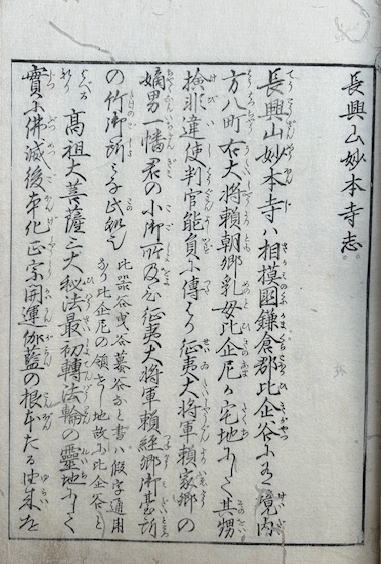 長興山妙本寺志。
長興山妙本寺ハ相摸國鎌倉郡比企谷にあり境内
方八町右大将頼朝卿乳母比企尼の宅地にして其甥
検非違使判官能員に傳はり征夷大将軍頼家卿の
嫡男一幡君の小御所及ひ征夷大将軍頼経卿御台所
の竹御所と
比器谷曳谷蟇谷なと書ハ假字通用
比企尼の領せし地故に比企谷と
高祖大菩薩三大秘法最初轉法輪の霊地にして
實に佛滅後本化正宗開運伽藍の根本たる由来は